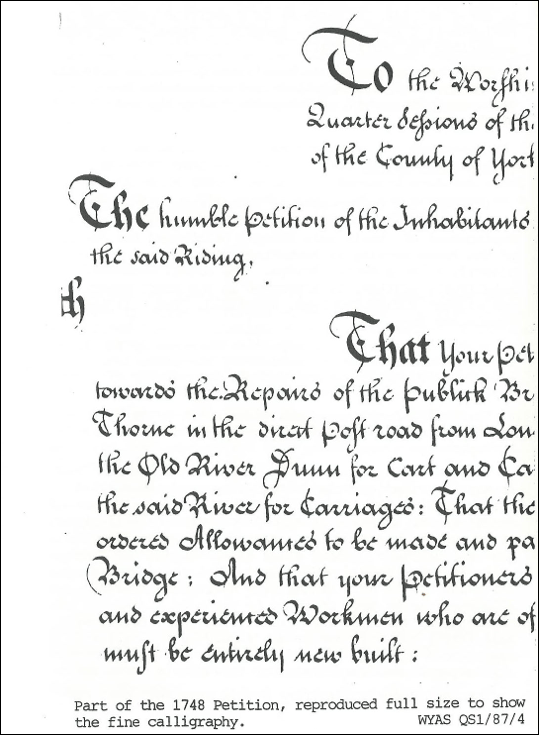 To the Worshi
Quarter Seſsions of th
of the County of York
The humble Petition of the Inhabitants
the said Riding,
th
That Your Pet
towards the Repairs of the Publick Br
Thorne in the direct Poſt road from Lon
the Old River Dunn for Cart and Ca
the said River for Carriages: That the
ordered Allowances to be made and pa
Bridge; And that your Petitioners
and experienced Workmen who are of
muſt be entirely new built:
Part of the 1748 Petition, reproduced full size to show
the fine calligraphy. WYAS QS1/87/4